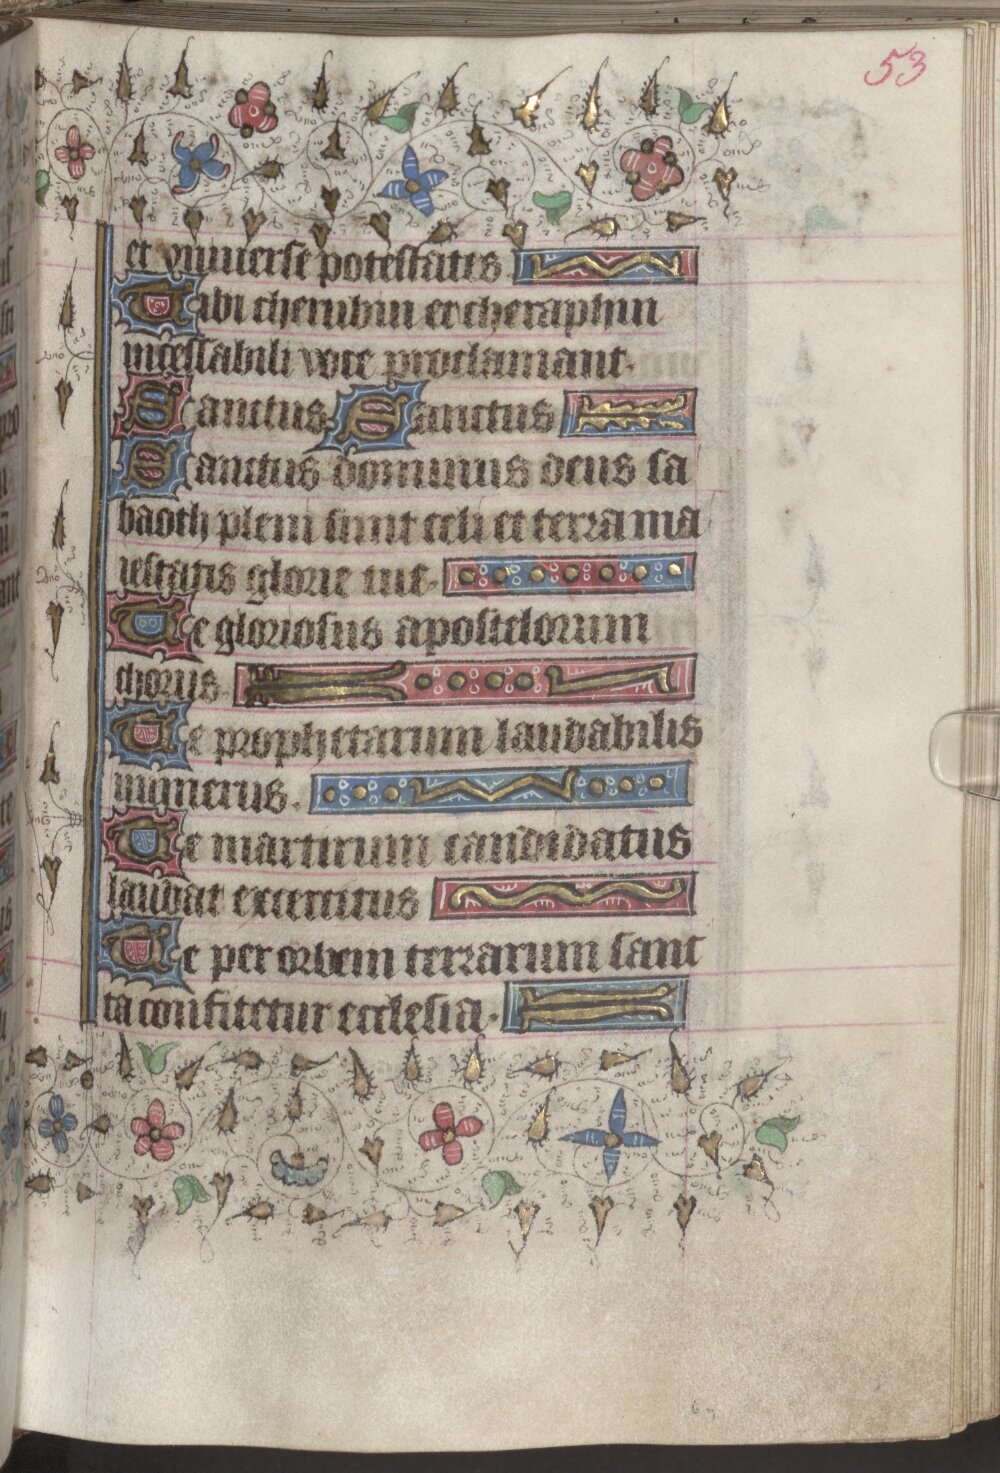 53
et vniuerse potestatis
Tibi cherubin et cheraphin
incessabili voce proclamant.
Sanctus. Sanctus
Sanctus dominus deus sa
baoth pleni sunt celi et terra ma
iestatis glorie tue.
Te gloriosus apostolorum
chorus.
Te prophetarum laudabilis
numerus.
Te martirum candidatus
laudat exercitus
Te per orbem terrarum sanc
ta confitetur ecclesia.